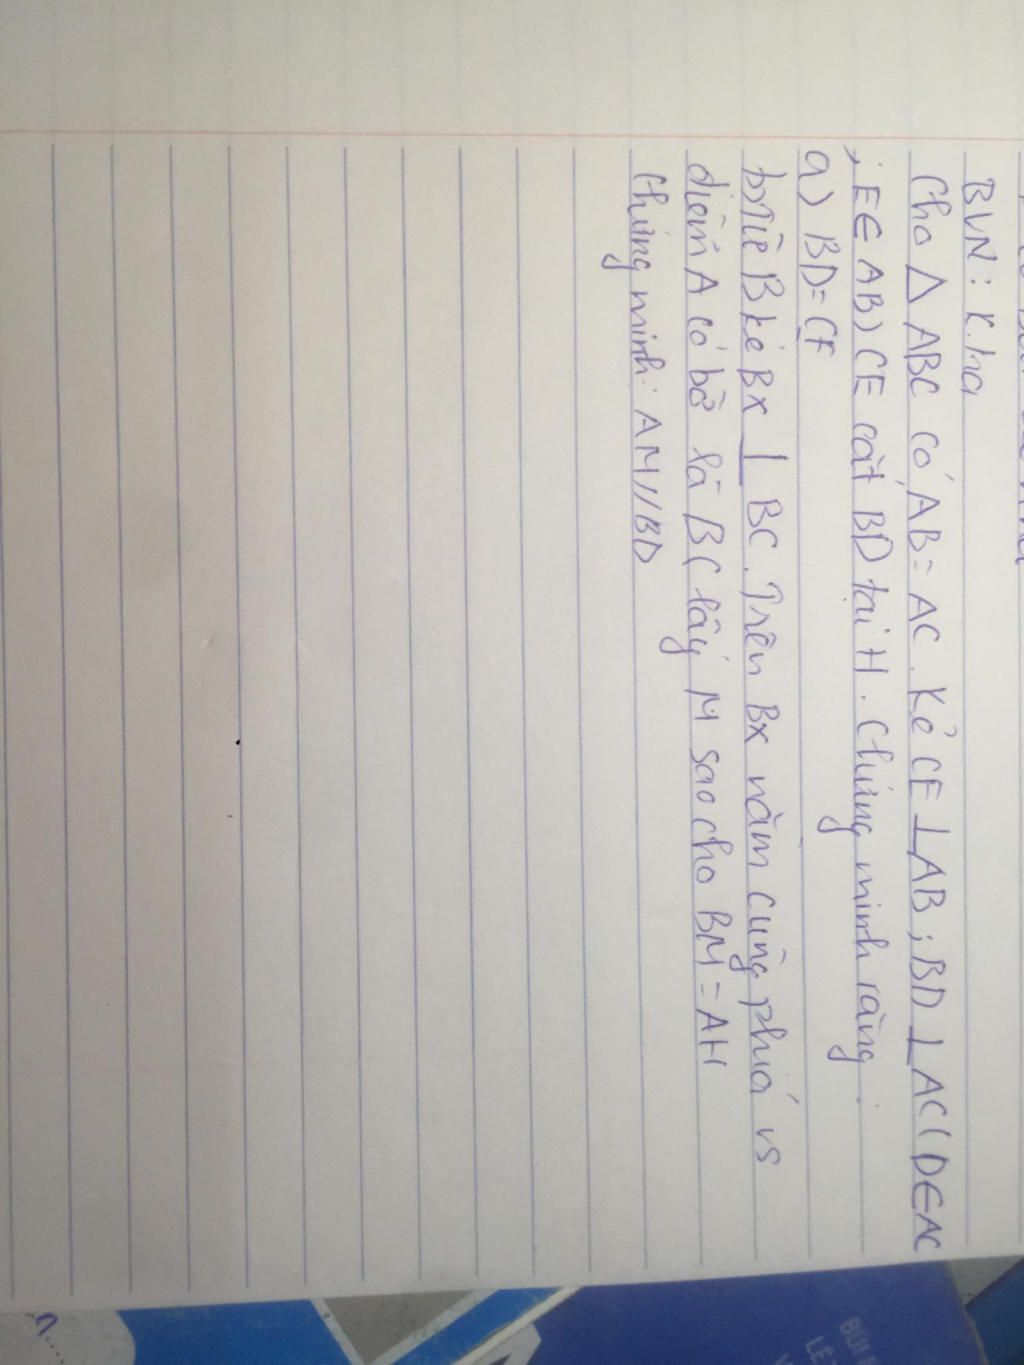 BVN: K.ha
Cho Δ ABC có AB = AC. Kẻ CE ⊥ AB; BD ⊥ AC (D∈AC
; E∈ AB) CE cắt BD tại H. Chứng minh rằng
a) BD=CE
b) Từ B kẻ Bx ⊥ BC. Trên Bx nằm cùng phía vs
điểm A có bờ là BC lấy M sao cho BM = AH
Chứng minh: AM//BD
BÙI
LÊ